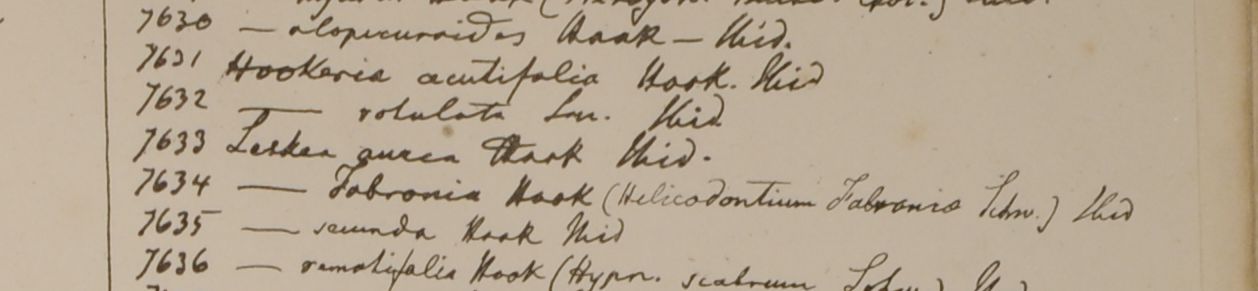 7630 — alopecuroides Hook — Ibid.
7631 Hookeria acutifolia Hook. Ibid
7632 —— rotulata Sm. Ibid
7633 Leskea aurea Hook Ibid.
7634 —— Fabronia Hook (Helicodontium Fabronia Schw.) Ibid
7635 —— secunda Hook Ibid
7636 — remotifolia Hook (Hypn. scabrum